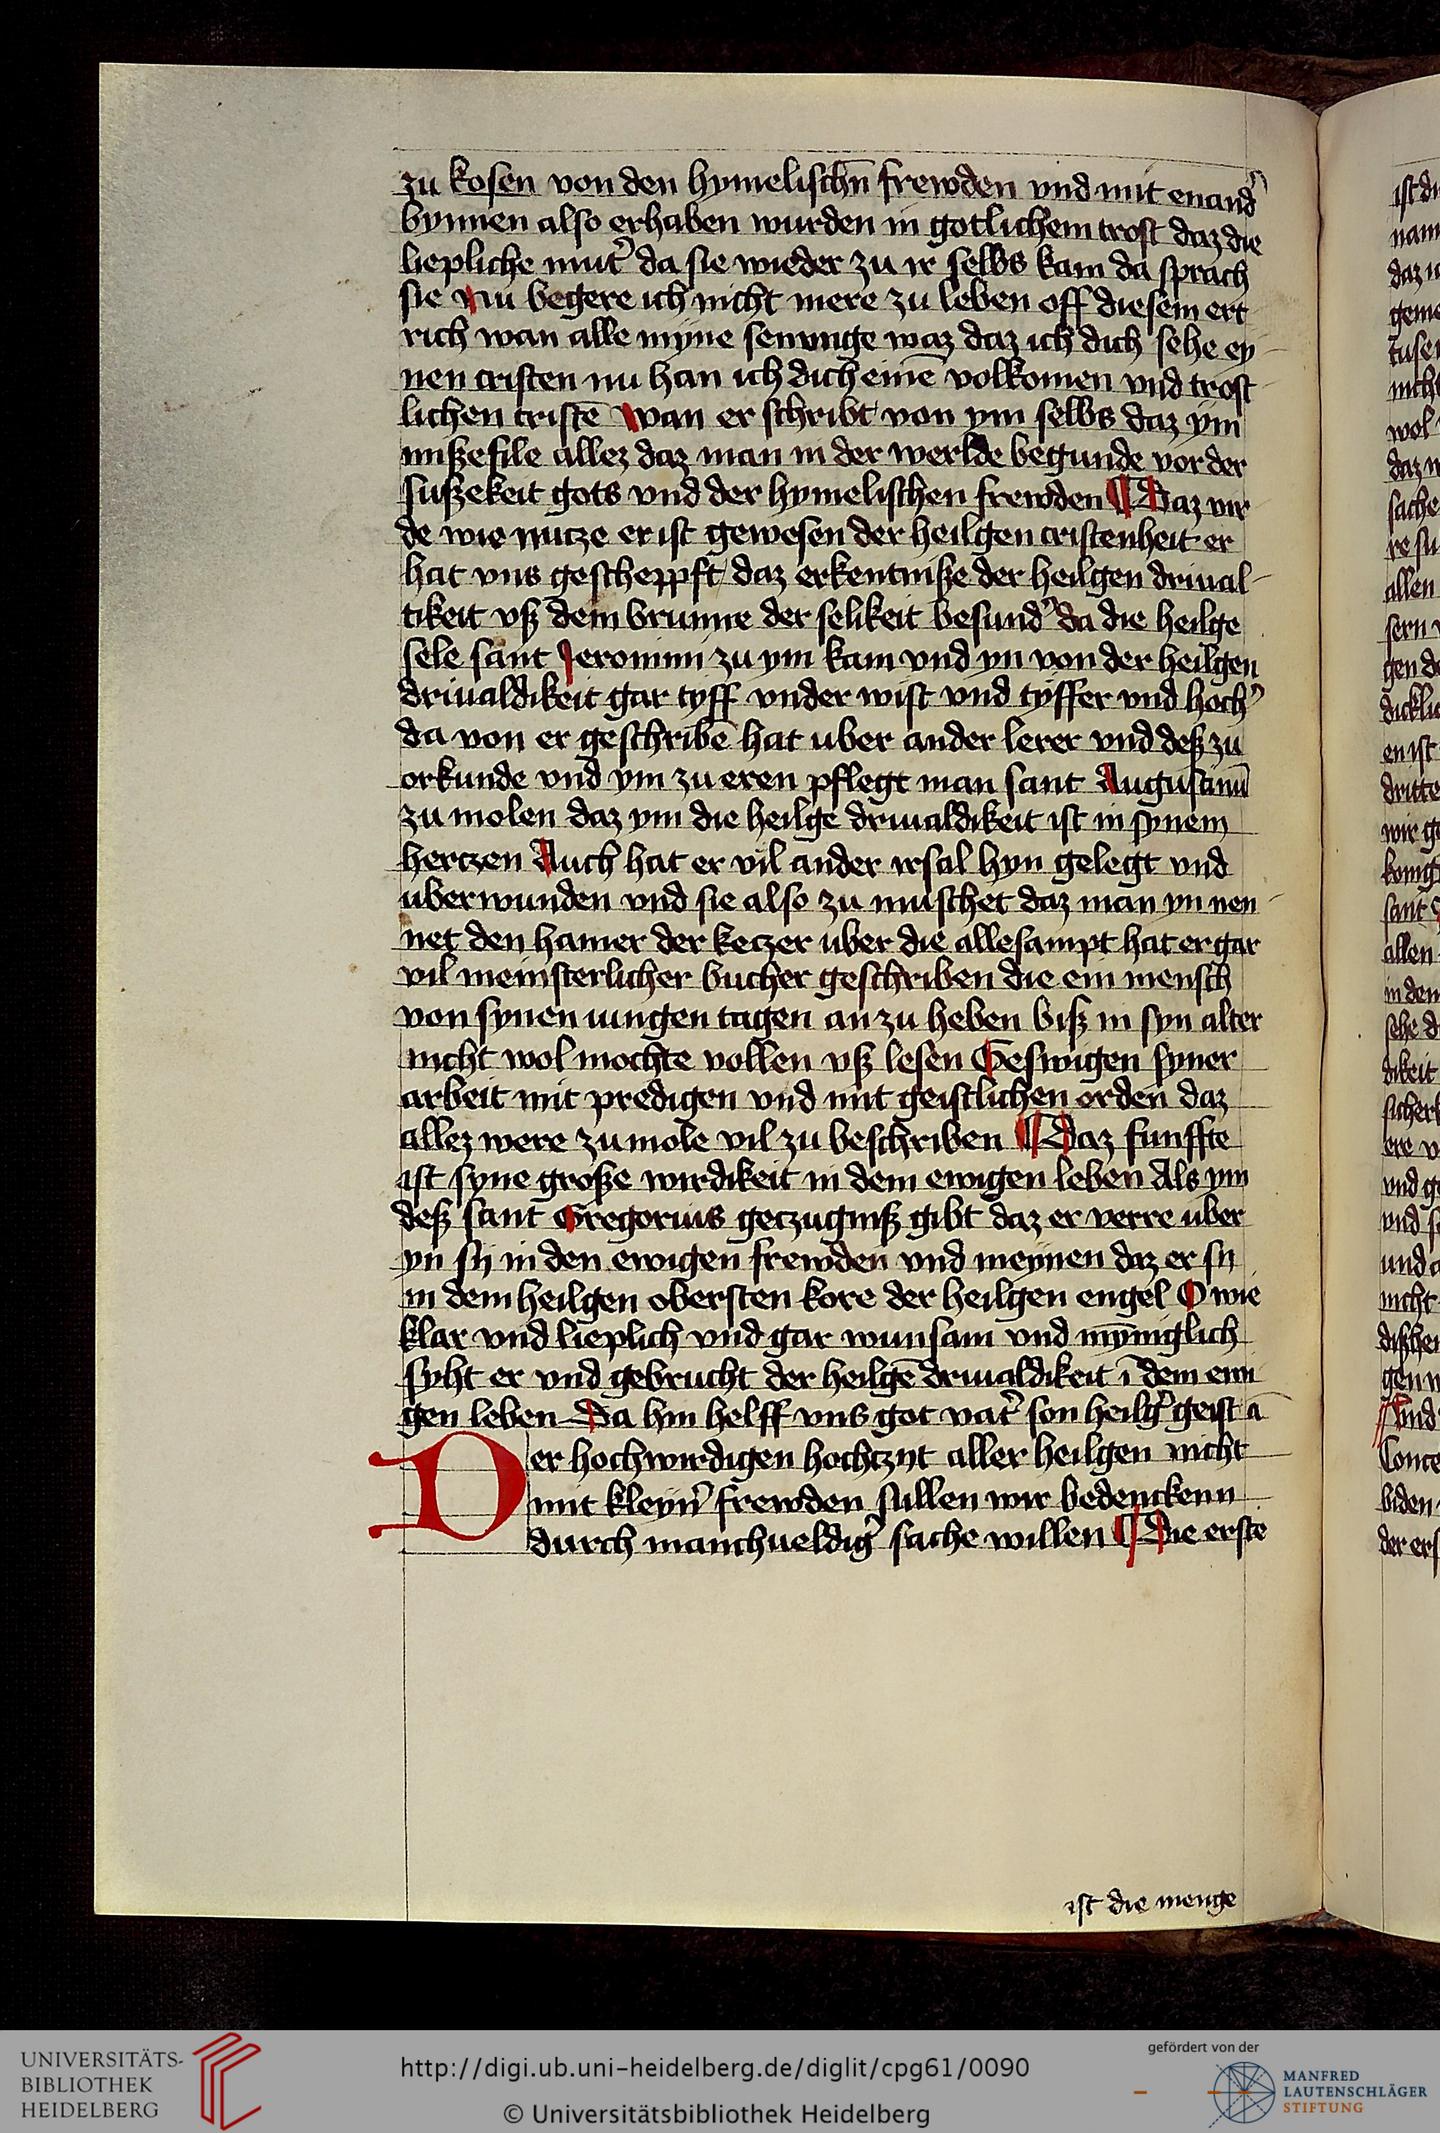 zu kosen von den hymelischn̄ frewden vnd mit enand᾽
bynnen also erhaben wurden in gotlichem trost daz die
liepliche mut᾽ da sie wieder zu ir selbs kam da sprach
sie Nu begere ich nicht mere zu leben off diesem ert
rich wan alle myne senunge waz daz ich dich sehe ey
nen cristen nu han ich dich einē volkomen vnd trost
lichen cristē Wan er schribt von ym selbs daz ym
mißefile allez daz man in der werlde begunde vor der
sußekeit gots vnd der hymelischen frewden ¶ Daz vir
de wie nutze er ist gewesen der heilgen cristenheit er
hat vns gescheppft daz erkentniße der heilgen driual
tikeit vß dem brunne der selikeit besund᾽ da die heilge
sele sant Jeronimi zu ym kam vnd yn von der heilgen
driualdikeit gar tyff vnder wist vnd tyffer vnd hoch᾽
da von er geschribē hat uber ander lerer vnd deß zu
orkunde vnd ym zu eren pflegt man sant Augustinū
zu molen daz ym die heilge driualdikeit ist in synem
hertzen Auch hat er vil ander irsal hyn gelegt vnd
uberwunden vnd sie also zu muschet daz man yn nen
net den hamer der ketzer uber die allesampt hat er gar
vil meinsterlicher bucher geschriben die ein mensch
von synen iungen tagen an zu heben biß in syn alter
nicht wol mochte vollen vß lesen Geswigen syner
arbeit mit predigen vnd mit geistlichen orden daz
allez were zu mole vil zu beschriben ¶ Daz funffte
ist syne große wirdikeit in dem ewigen leben Als ym
deß sant Gregorius getzugniß gibt daz er verre uber
yn sy in den ewigen frewden vnd meynen daz er sy
in dem heilgen obersten kore der heilgen engel O wie
klar vnd lieplich vnd gar wunsam vnd mȳniglich
syht er vnd gebrucht der heilgē driualdikeit ī dem ewi
gen leben Da hin helff vns got vat᾽ son heilg᾽ geist ā
Der hochwirdigen hochtzyt aller heilgen nicht
mit kleyn᾽ frewden sullen wir bedenckenn
durch manchueldig᾽ sache willen ¶ Die erste
ist die menge
UNIVERSITÄTS-
BIBLIOTHEK
HEIDELBERG
http://digi.ub.uni-heidelberg.de/diglit/cpg61/0090
© Universitätsbibliothek Heidelberg
gefördert von der
MANFRED
LAUTENSCHLÄGER
STIFTUNG